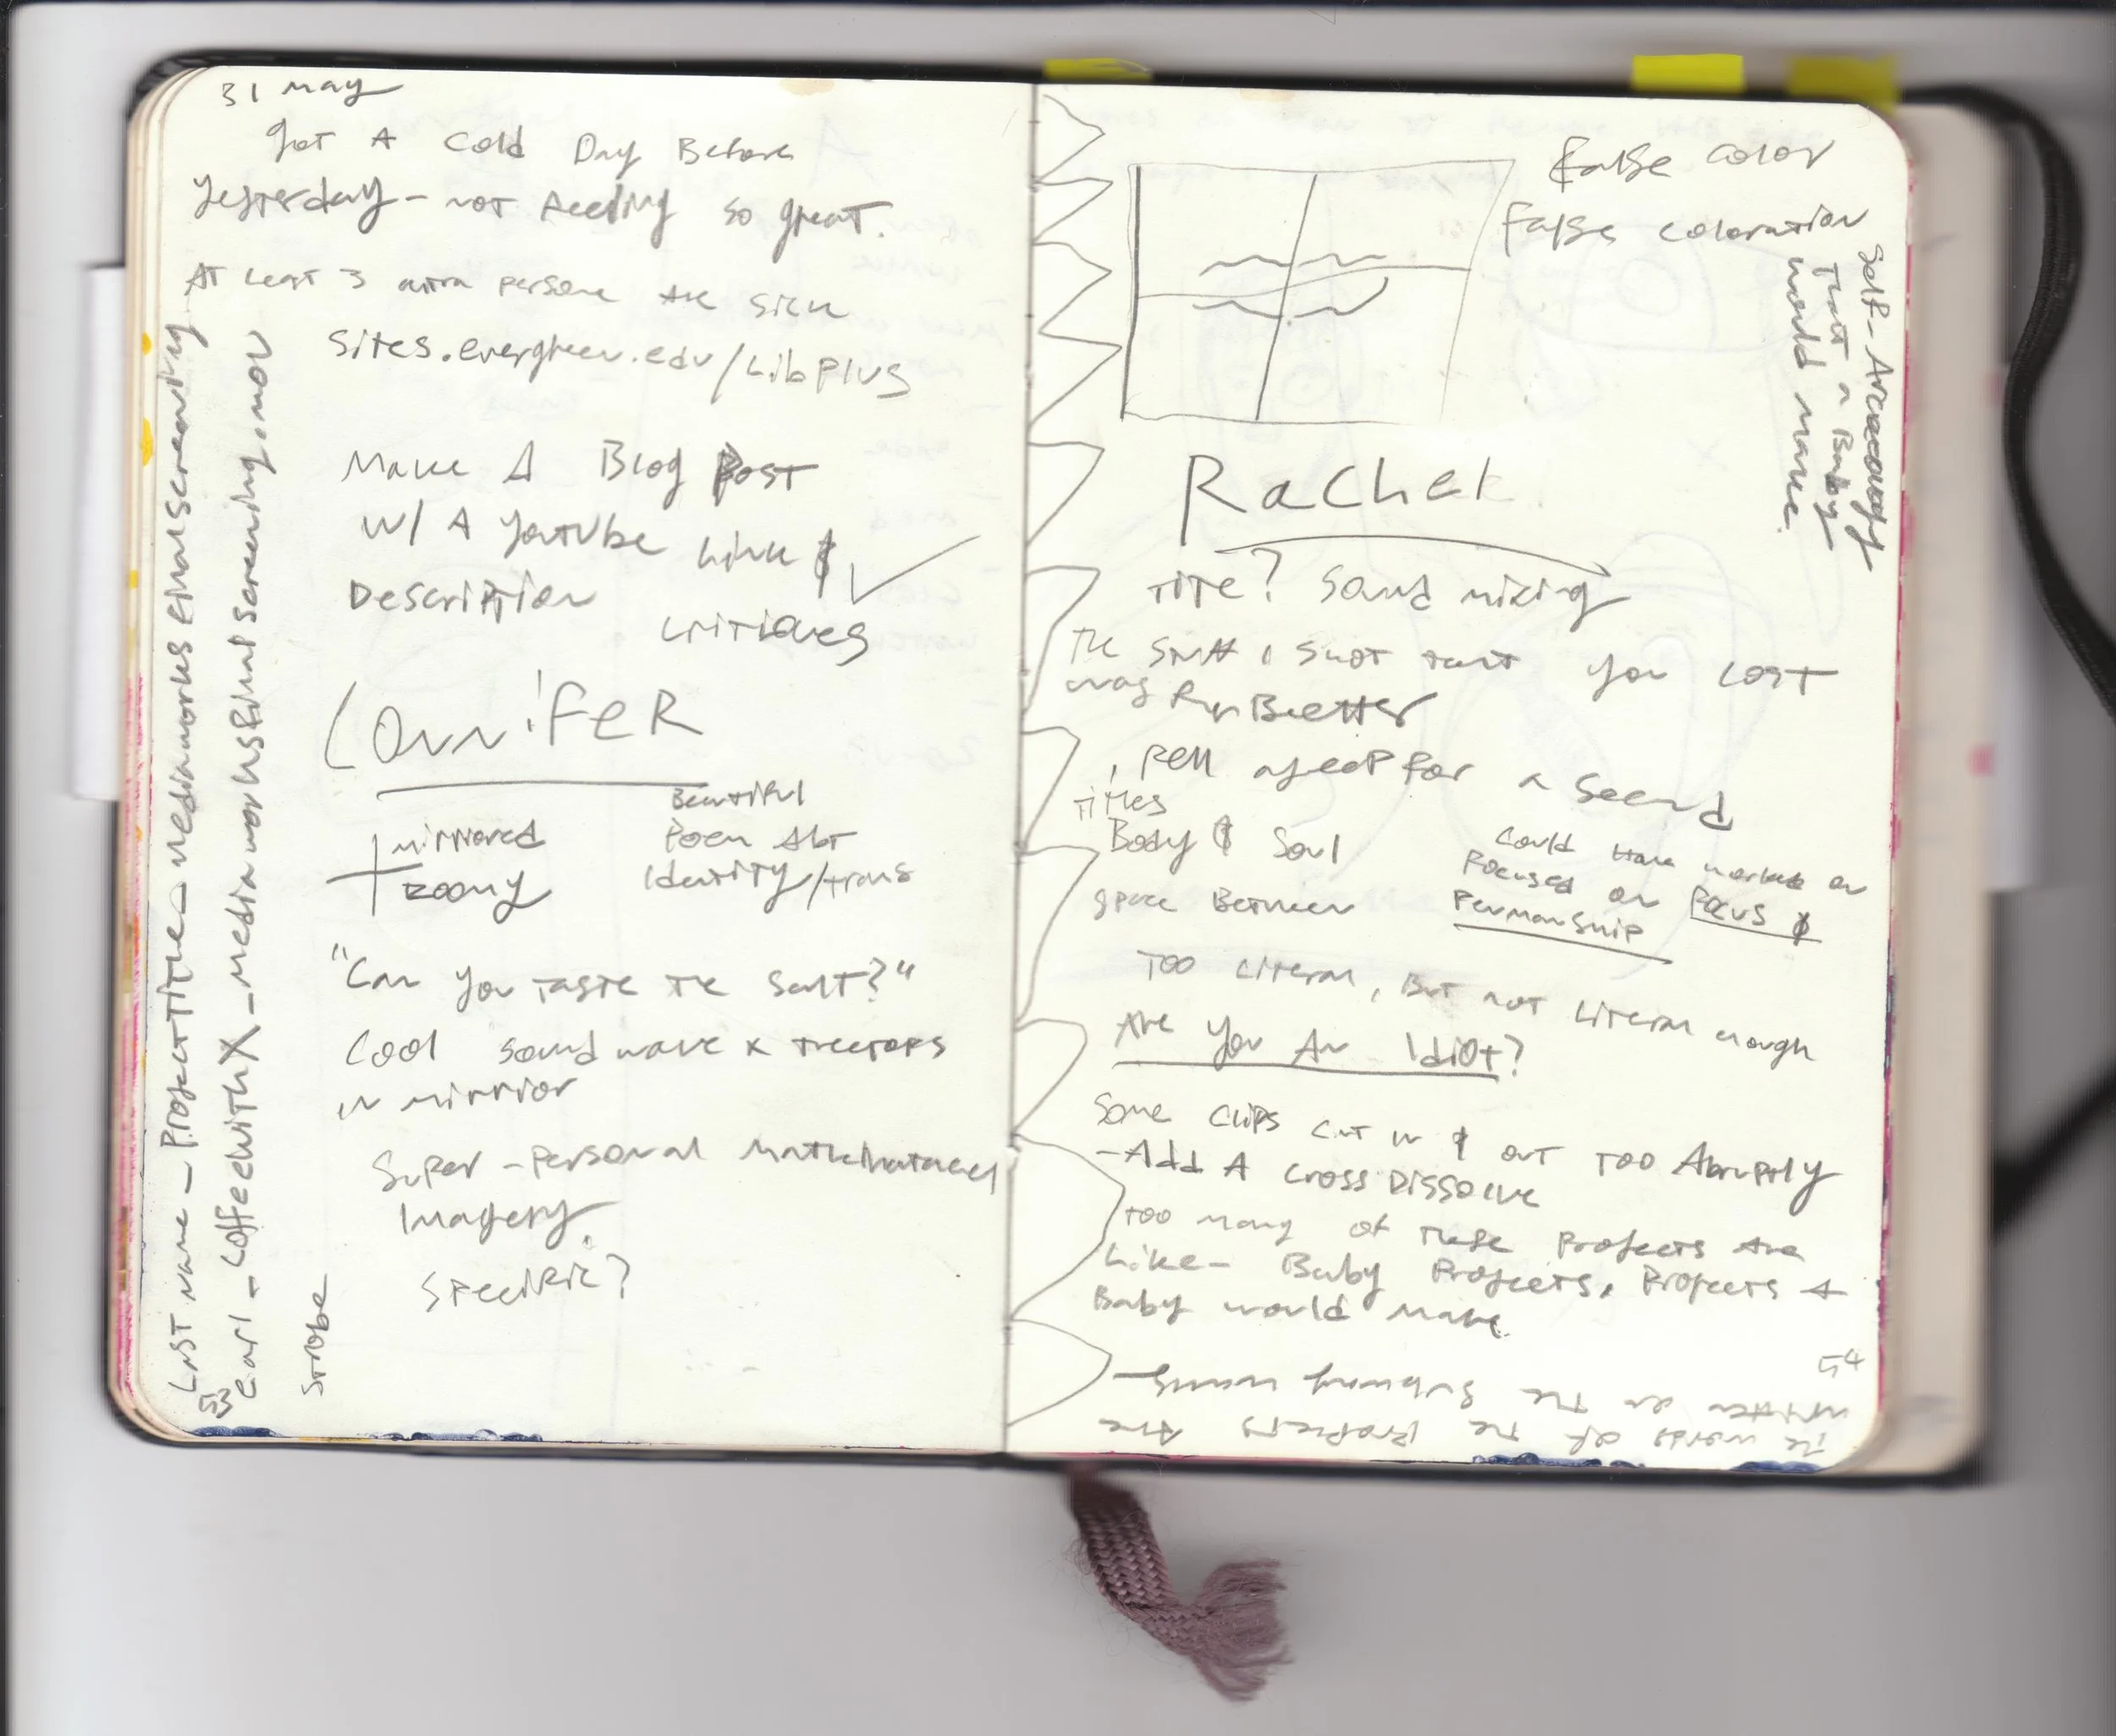 31 may
got A Cold Day Before
yesterday - not feeling so great.
At Least 3 persons are sick
sites.evergreen.edu/LibPlus
Make A Blog Post
w/ A Youtube Link &
Description
critiques
ConniFeR
mirrored
zoomy
Beautiful
Poem Abt
Identity/trans
"Can you taste the salt?"
Cool sound wave x treetops
in mirrior
Super-personal
Imagery.
Specific?
Strobe
Last name _ Project Title _ mediaworksfinalscreening
Earl _ CoffeewithX _ mediaworksfinalscreening.mov
53
False color
False coloration
Self-
That a Baby
would make.
Rachel
Title? Sound mixing
The stuff I shot that you lost
was Better
I fell asleep for a second
Titles
Body & Soul
space Between
Could Have worked on
Focused on Focus &
Penmanship
Too Literal, But not Literal enough
Are You An Idiot?
Some clips cut in & out too Abruptly
-Add A Cross Dissolve
Too many of These Projects Are
Like- Baby Projects, Projects A
Baby would Make.
54
The words of the Prophets Are
written on the Subway walls-